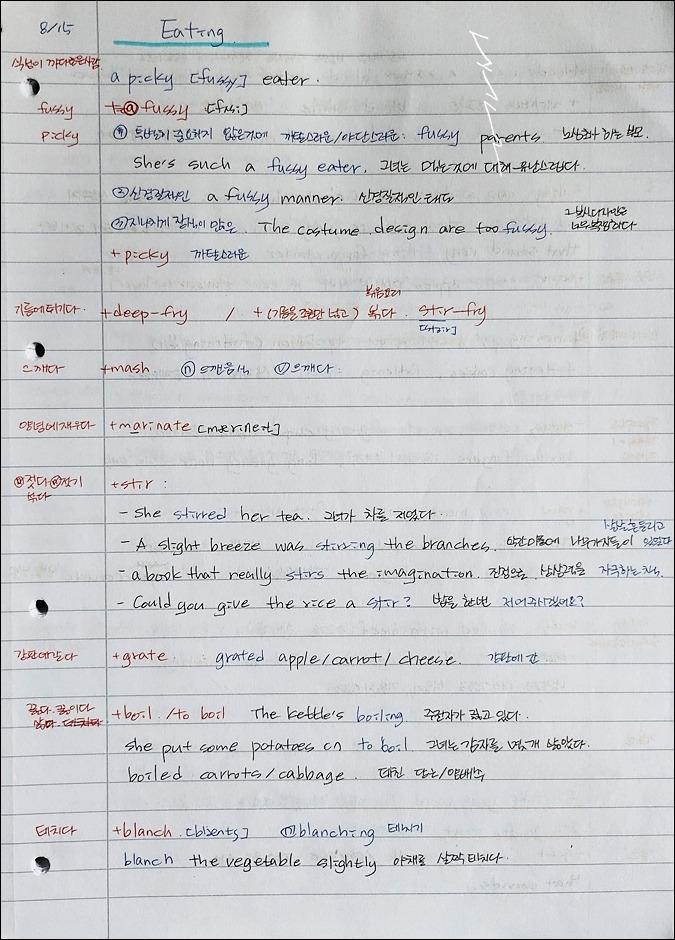 8/15 Eating
식성이 까다로운사람
a picky [fussy] eater.
fussy +ⓐ fussy [fʌsi]
picky ① 특별히 중요하지 않은것에 까탈스러운/야단스러운: fussy parents.
She's such a fussy eater. 그녀는 먹는것에 대해 유난스럽다.
② 신경질적인 a fussy manner. 신경질적인 태도
③ 지나치게 장식이 많은. The costume design are too fussy. 그 의상디자인은 너무 복잡하다
+ picky 까탈스러운
볶음요리
기름에 튀기다 +deep-fry / + (기름을 조금만 넣고) 볶다. stir-fry
[stəːr]
으깨다 +mash ⓝ 으깬음식 ⓥ 으깨다:
양념에 재우다 +marinate [mærineit]
ⓥ 젓다 ⓝ 젓기 +stir :
볶다
- She stirred her tea. 그녀가 차를 저었다.
- A slight breeze was stirring the branches. 약간 이는 바람에 나무가지들이 살살 흔들리고 있었다
- a book that really stirs the imagination. 진정으로 상상력을 자극하는 책.
- Could you give the rice a stir? 밥을 한번 저어주시겠어요?
강판에 갈다 +grate grated apple/carrot/cheese. 강판에 간
끓다. 끓이다 +boil /to boil The kettle's boiling. 주전자가 끓고 있다.
삶다. 데치다
she put some potatoes on to boil. 그녀는 감자를 몇개 삶았다.
boiled carrots/cabbage. 데친 당근/양배추
데치다 +blanch ⓝ blanching 데치기
blanch the vegetable slightly 야채를 살짝 데치다.